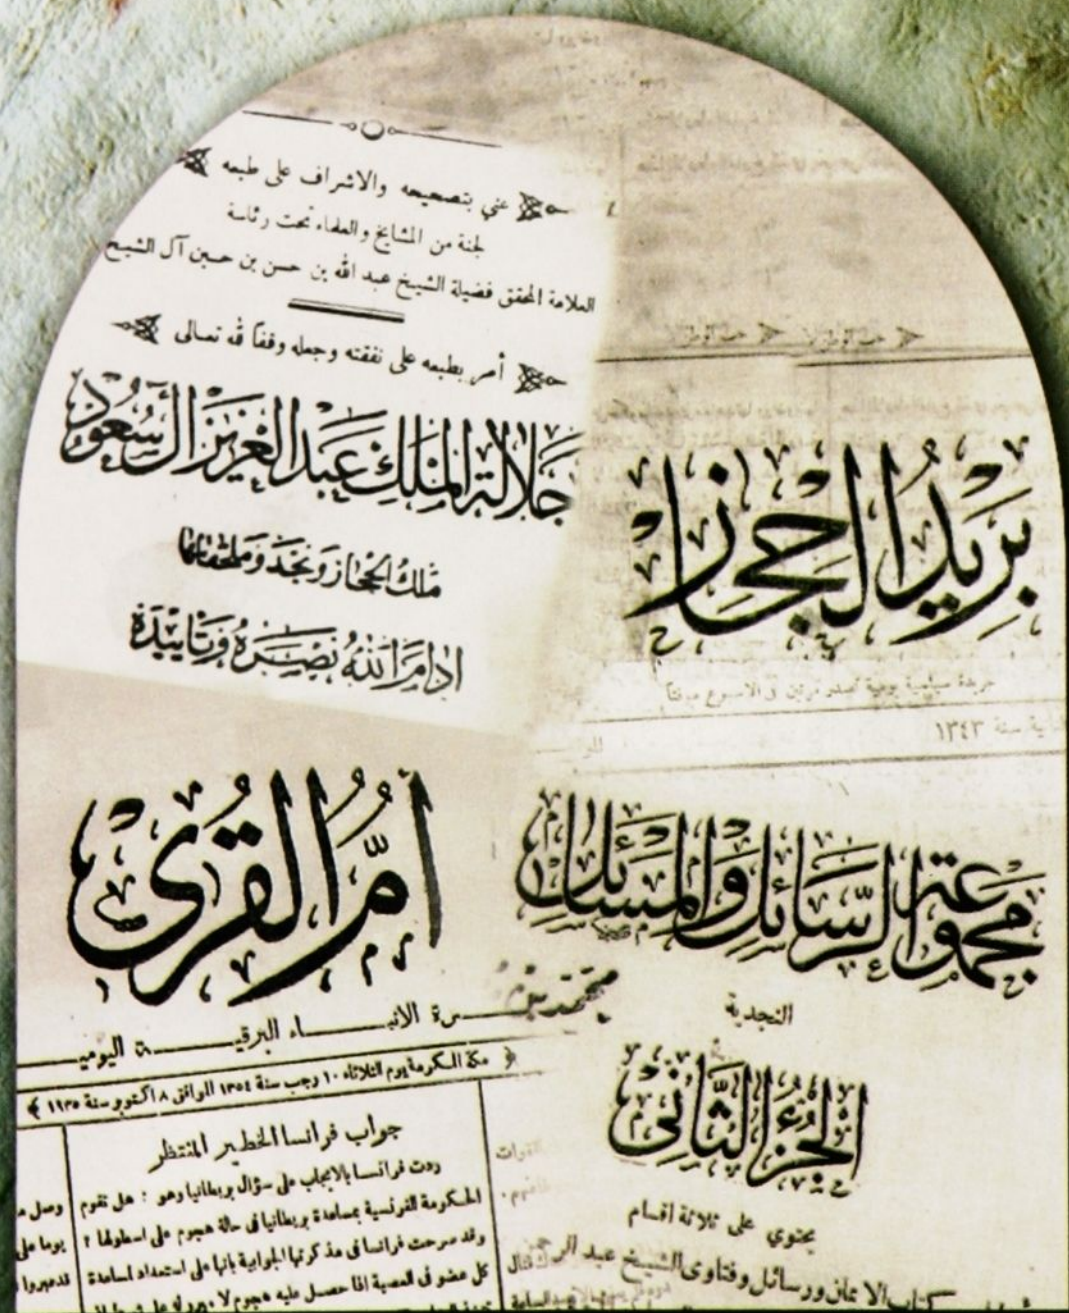 عني بتصحيحه والاشراف على طبعه
لجنة من المشايخ والعلماء تحت رئاسة
العلامة المحقق فضيلة الشيخ عبد الله بن حسن بن حسين آل الشيخ
أمر بطبعه على نفقته وجعله وقفاً لله تعالى
جلالة الملك عبد العزيز آل سعود
ملك الحجاز ونجد وملحقاتها
ادام الله نصره وتأييده
بريد الحجاز
جريدة سياسية يومية تصدر مرتين في الاسبوع موقتاً
سنة ١٣٤٣
أم القرى
الانباء البرقية اليومية
مكة المكرمة يوم الثلاثاء ١٠ رجب سنة ١٣٥٤ الموافق ٨ اكتوبر سنة ١٩٣٥
جواب فرانسا الخطير المنتظر
ردت فرانسا بالايجاب على سؤال بريطانيا وهو : هل تقوم
الحكومة الفرنسية بمساعدة بريطانيا في حالة هجوم على اسطولها ؟
وقد صرحت فرانسا في مذكرتها الجوابية بانها على استعداد لمساعدة
كل عضو في العصبة اذا حصل عليه هجوم
وصل
يوما على
مجموعة الرسائل والمسائل
النجدية
الجزء الثاني
يحتوي على ثلاثة اقسام
كتاب الايمان ورسائل وفتاوى الشيخ عبد الرحمن